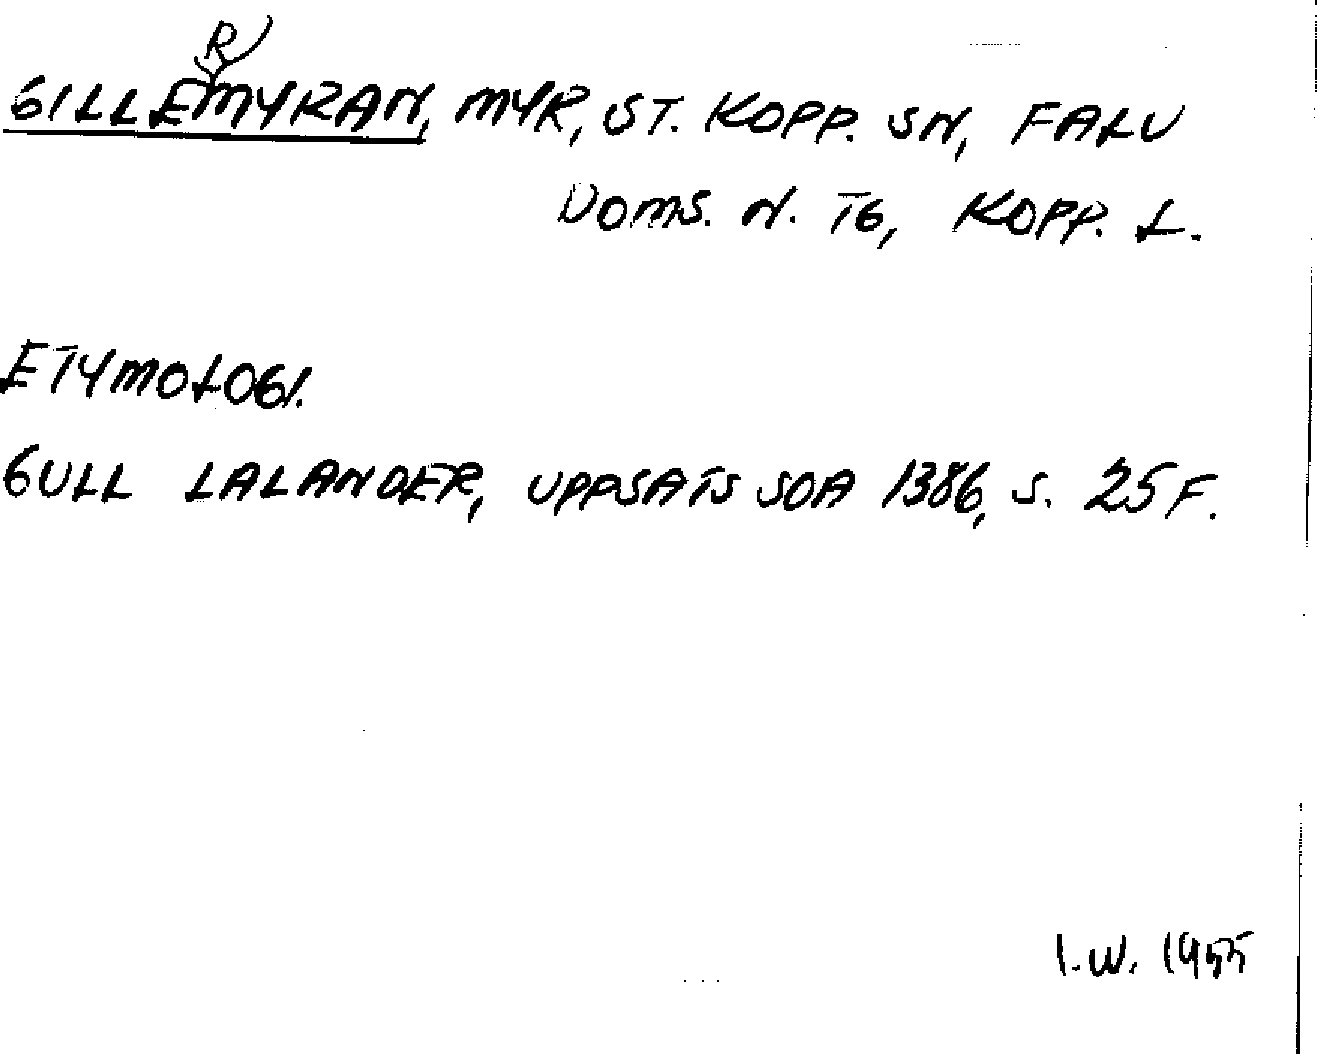 GILLERMYRAN, MYR, ST. KOPP. SN, FALU
DOMS. N. TG, KOPP. L.
ETYMOLOGI.
GULL LALANDER, UPPSATS SOA 1386, S. 25 F.
I.W. 1955